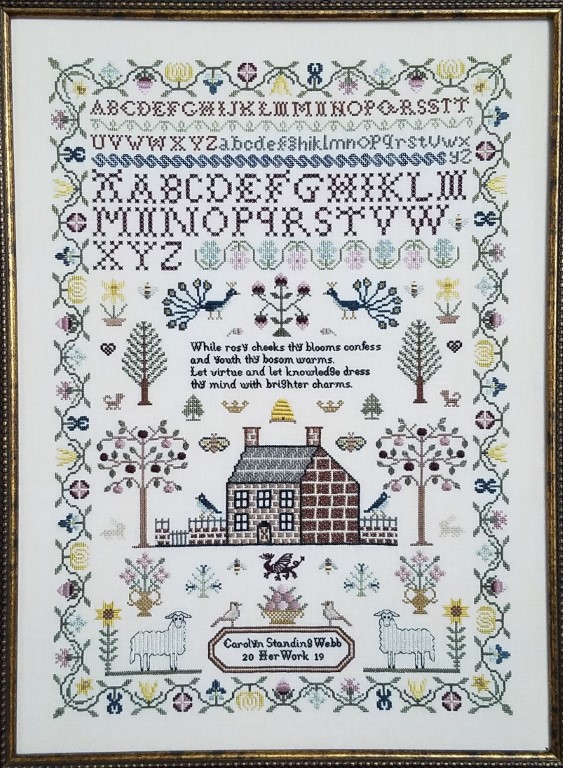 ABCDEFGHIJKLMNOPQRSSTT
UVWWXYZabcdefghiklmnopqrstuvwx
yz
AABCDEFGHIKLM
MNOPQRSTVW
XYZ
While rosy cheeks thy blooms confess
and youth thy bosom warms.
Let virtue and let knowledge dress
thy mind with brighter charms.
Carolyn Standing Webb
20 Her Work 19